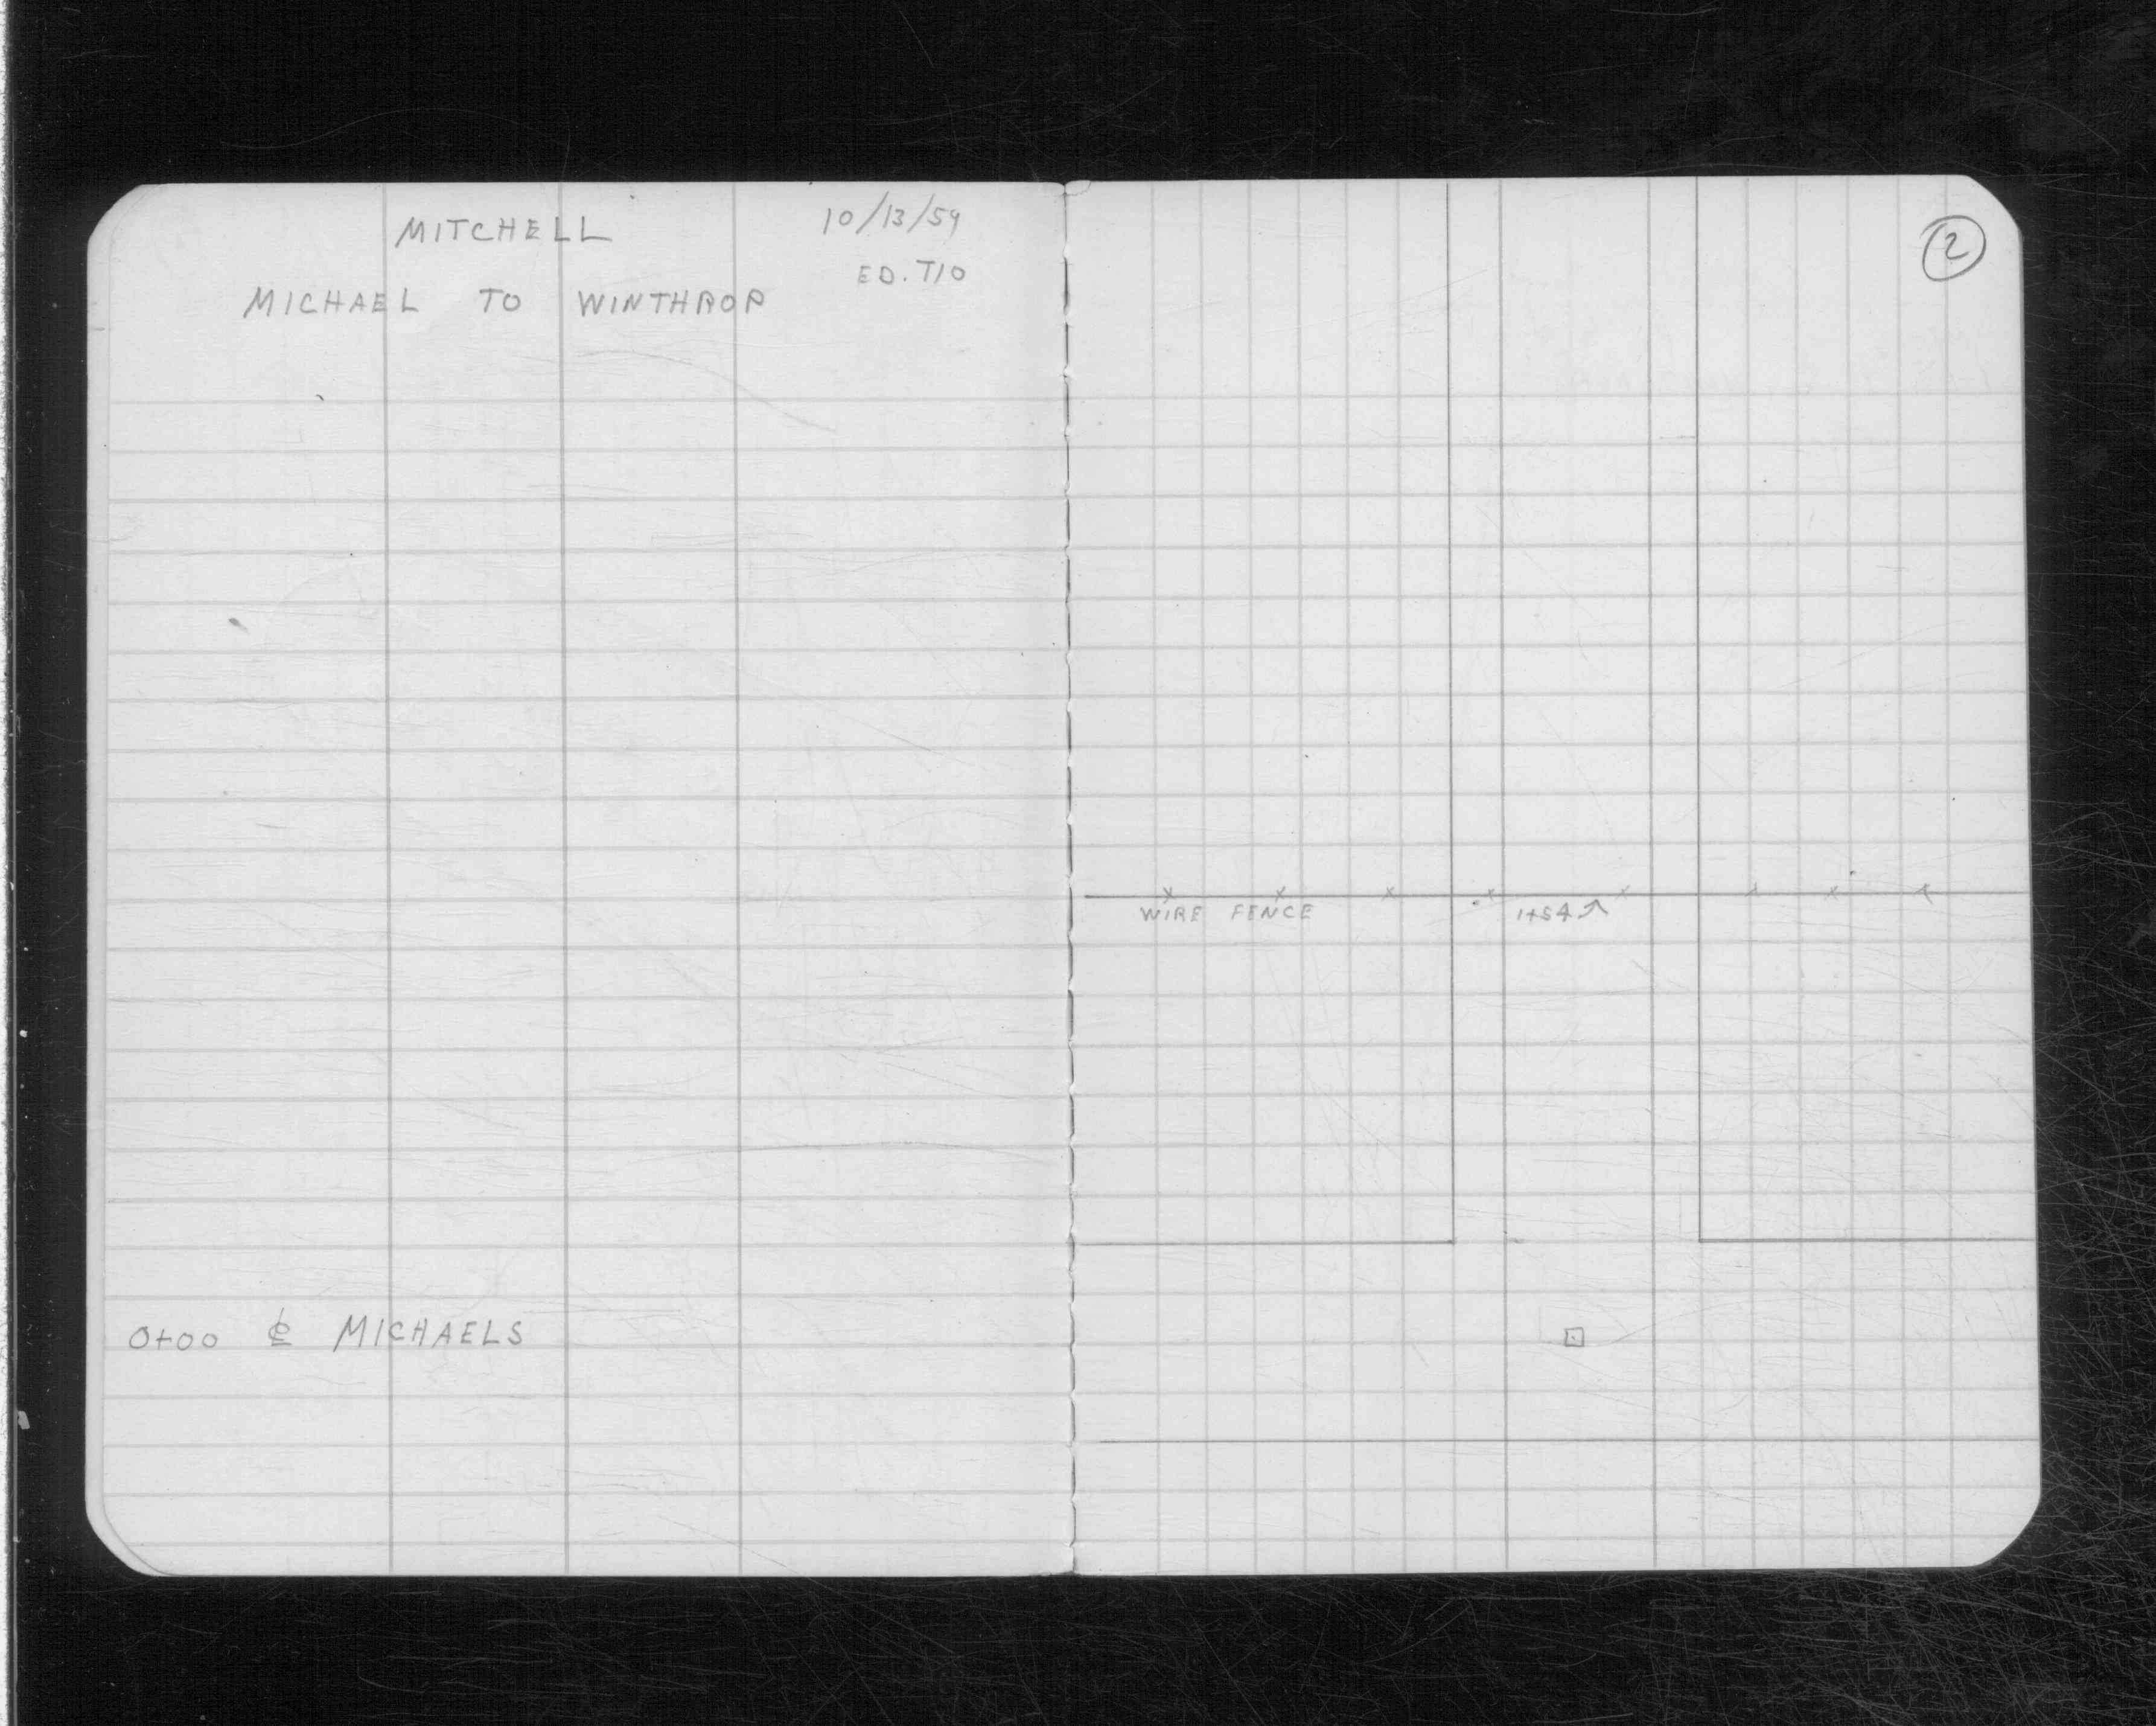 MITCHELL
10/13/59
ED. T10
MICHAEL TO WINTHROP
0+00 ℄ MICHAELS
2
WIRE FENCE
1+54